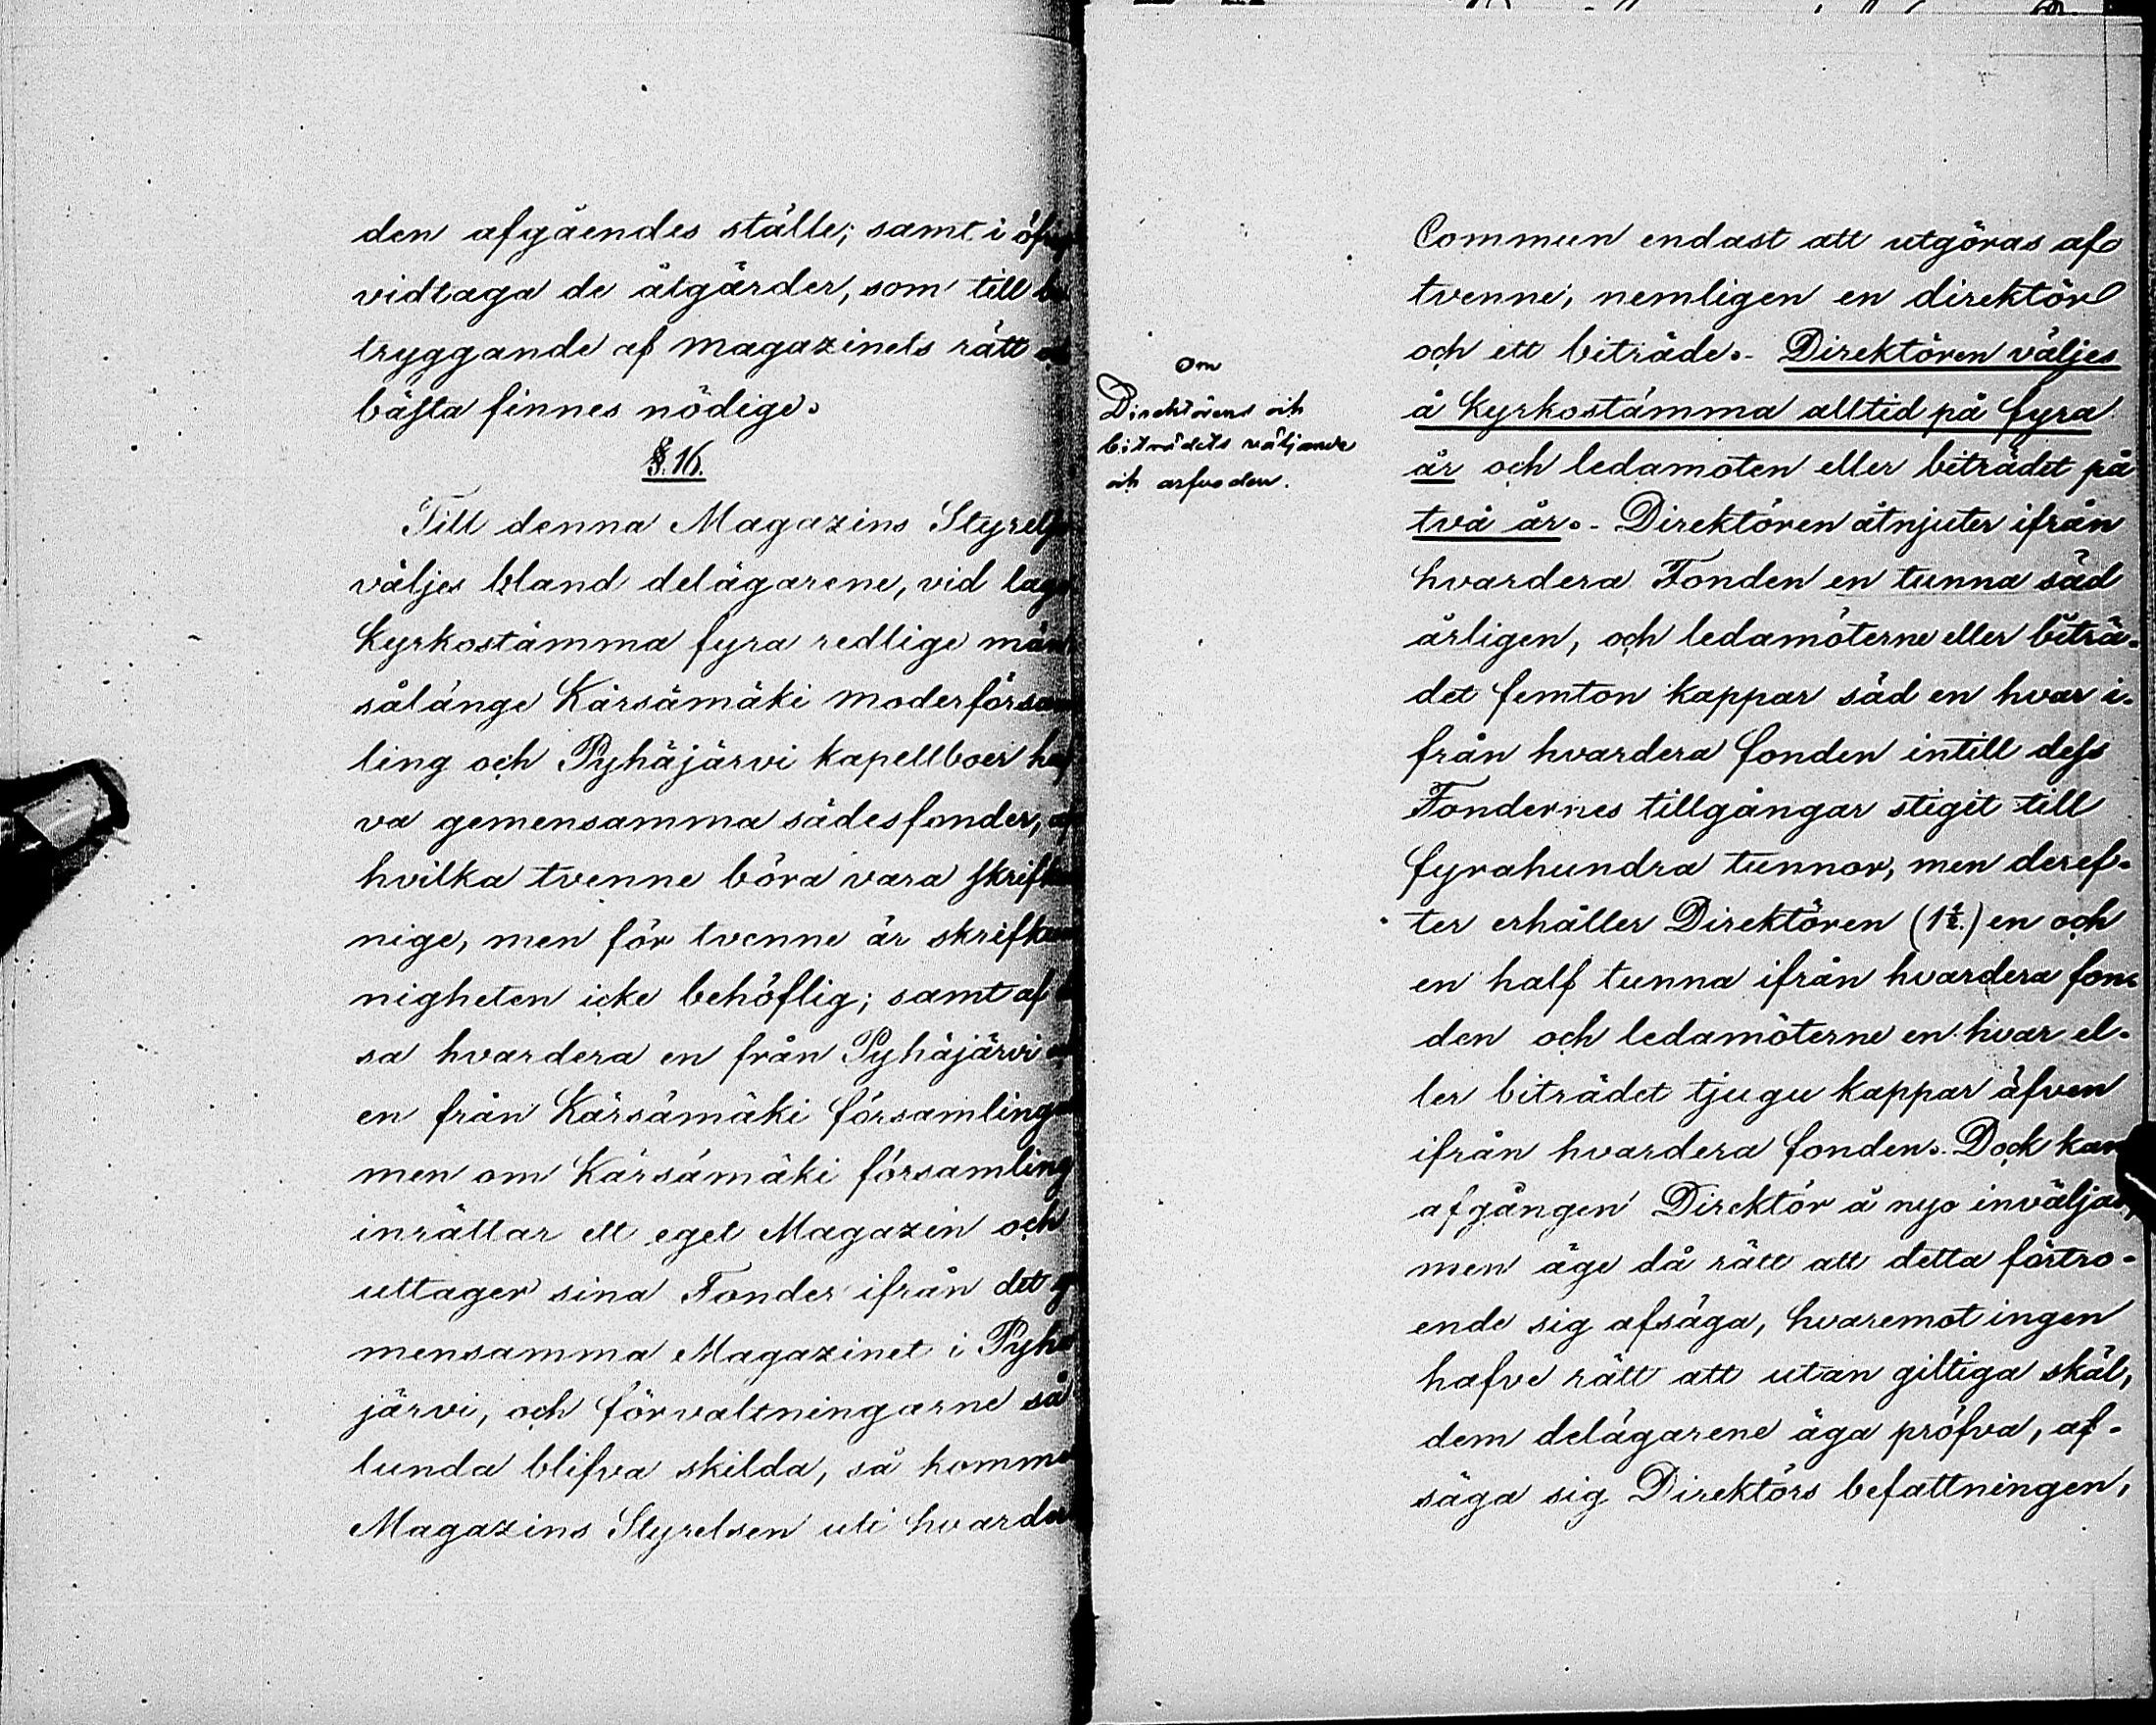 den afgåendes ställe; samt i öfrigt
vidtaga de åtgärder, som till be
tryggande af magazinets rätt
bästa finnes nödige.
§. 16.
Till denna Magazins Styrelse
väljes bland delägarene, vid laga
Kyrkostämma fyra redlige män
sålänge Kärsämäki moderförsam
ling och Pyhäjärvi kapellboer haf
va gemensamma sädesfonder, af
hvilka tvenne böra vara skrifkun
nige, men för tvenne är skrifkun
nigheten icke behöflig; samt af
sa hvardera en från Pyhäjärvi
en från Kärsämäki församlingar
men om Kärsämäki församling
inrättar ett eget Magazin och
uttager sina Fonder ifrån det ge
mensamma Magazinet i Pyhä
järvi, och förvaltningarne så
lunda blifva skilda, så komme
Magazins Styrelsen uti hvarder
Om
Direktörens och
biträdets väljande
och arfvoden.
Commun endast att utgöras af
tvenne, nemligen en direktör
och ett biträde.- Direktören väljes
å Kyrkostämma alltid på fyra
år och ledamoten eller biträdet på
två år.- Direktören åtnjuter ifrån
hvardera Fonden en tunna säd
årligen, och ledamöterne eller biträ-
det femton kappar säd en hvar i-
från hvardera fonden intill dess
Fondernes tillgångar stigit till
fyrahundra tunnor, men deref-
ter erhåller Direktören (1½.) en och
en half tunna ifrån hvardera fon-
den och ledamöterne en hvar el-
ler biträdet tjugu kappar äfven
ifrån hvardera fonden. Dock kan
afgången Direktör å nyo inväljas,
men äge då rätt att detta förtro-
ende sig afsäga, hvaremot ingen
hafve rätt att utan giltiga skäl,
dem delägarene äga pröfva, af-
säga sig Direktörs befattningen,